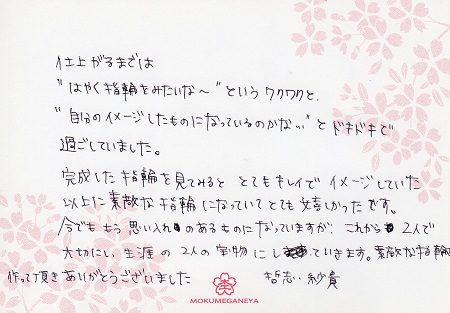 仕上がるまでは
"はやく指輪をみたいな〜"というワクワクと、
"自分のイメージしたものになっているのかな…"とドキドキで
過ごしていました。
完成した指輪を見てみると とてもキレイで イメージしていた
以上に素敵な指輪になっていてとても嬉しかったです。
今でももう思い入れのあるものになっていますが、これから2人で
大切にし、生涯の2人の宝物にしていきます。素敵な指輪
作って頂きありがとうございました 哲志・紗貴
MOKUMEGANEYA